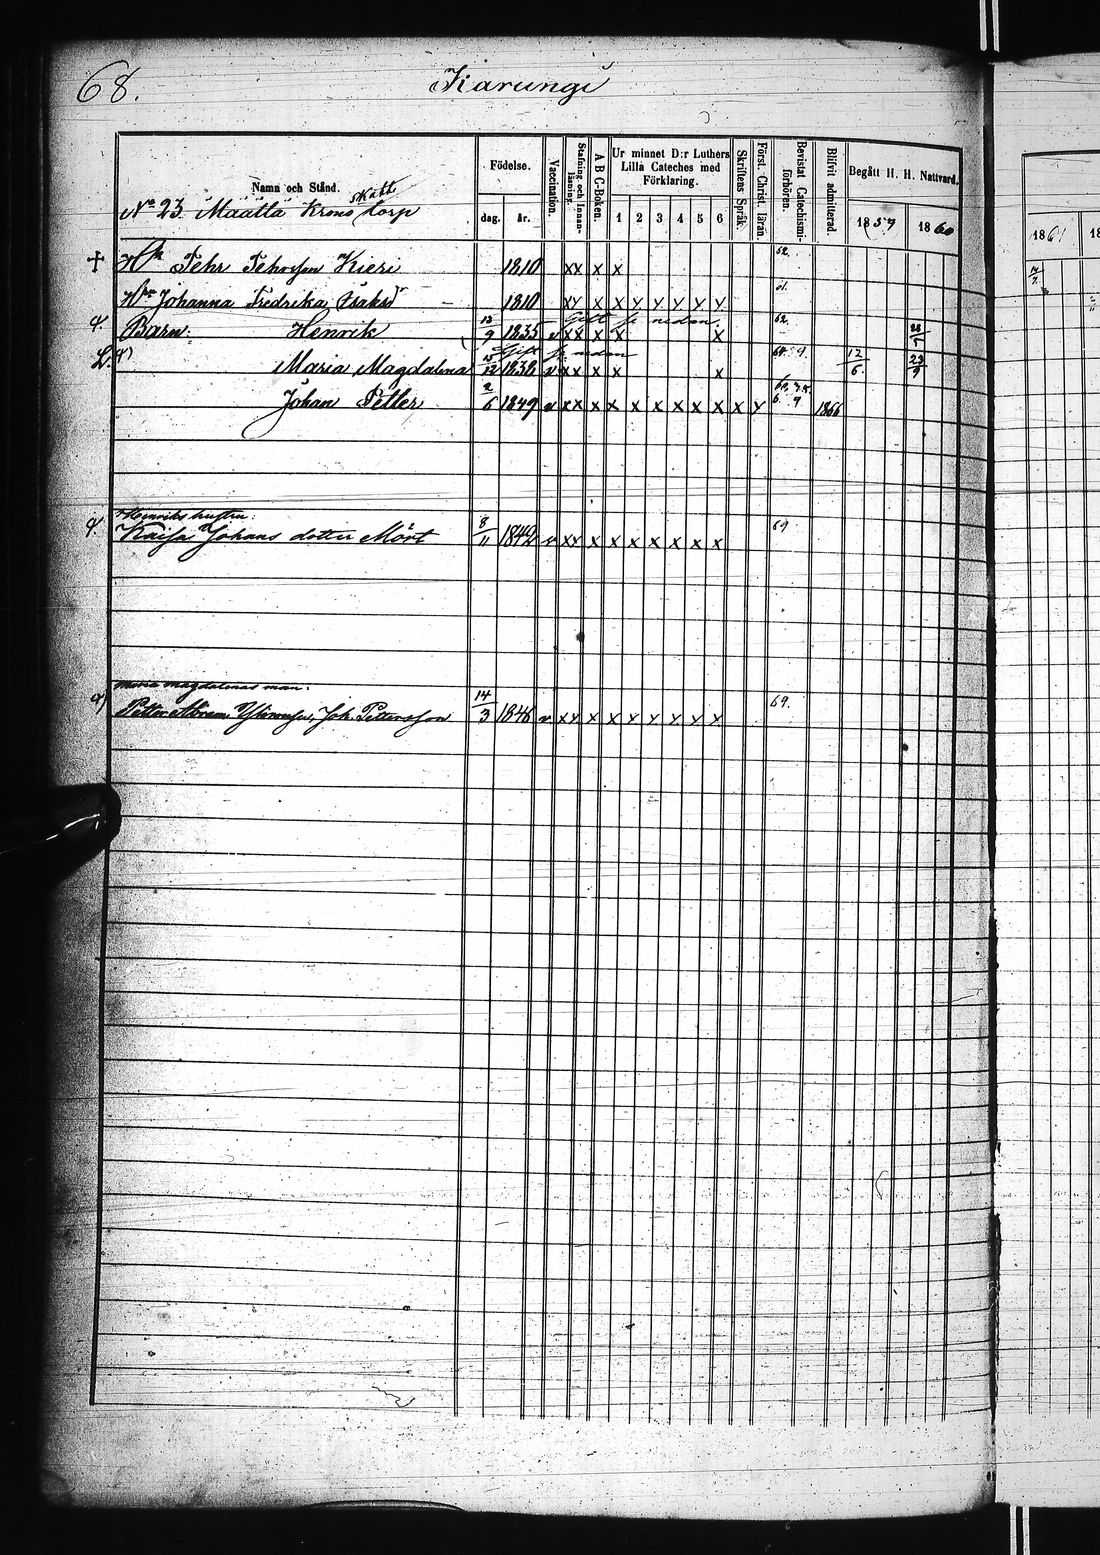 68.
Karungi
Namn och Stånd.
Födelse.
dag.
år.
Vaccination.
Stafning och Innanläsning.
A B C-Boken.
Ur minnet D:r Luthers Lilla Cateches med Förklaring.
1 2 3 4 5 6
Skriftens Språk.
Först. Christ. läran.
Bevistat Catechismiförhören.
Blifvit admitterad.
Begått H. H. Nattvard.
1859 1860
1861 18
skatt
No 23. Määttä Krono torp
† Pehr Pehrsson Kieri 1810 xx x x 62.
Johanna Fredrika 1810 xx x x y y y y y
Gift se nedan
Barn: Henrik 9 1835 v xx x x x 62.
Gift se nedan
Maria Magdalena 15/12 1838 v xx x x x 12/6 23/9
Johan Petter 2/6 1849 v xx x x x x x x x x y 1866
Henriks hustru:
Kaisa Johans dotter Mört 8/11 1842 v xx x x x x x x x 69
Maria Magdalenas man:
Petter Abram Joh. Pettersson 14/3 1846 v xx x x y y y y y 69.